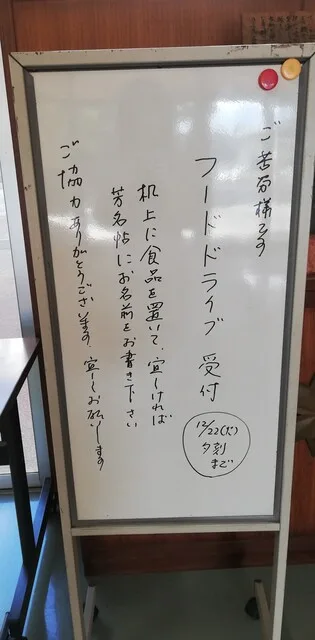 ご苦労様です
フードドライブ 受付
12/22(火)
夕刻
まで
机上に食品を置いて、宜しければ
芳名帖にお名前をお書き下さい
ご協力ありがとうございます。宜しくお願いします